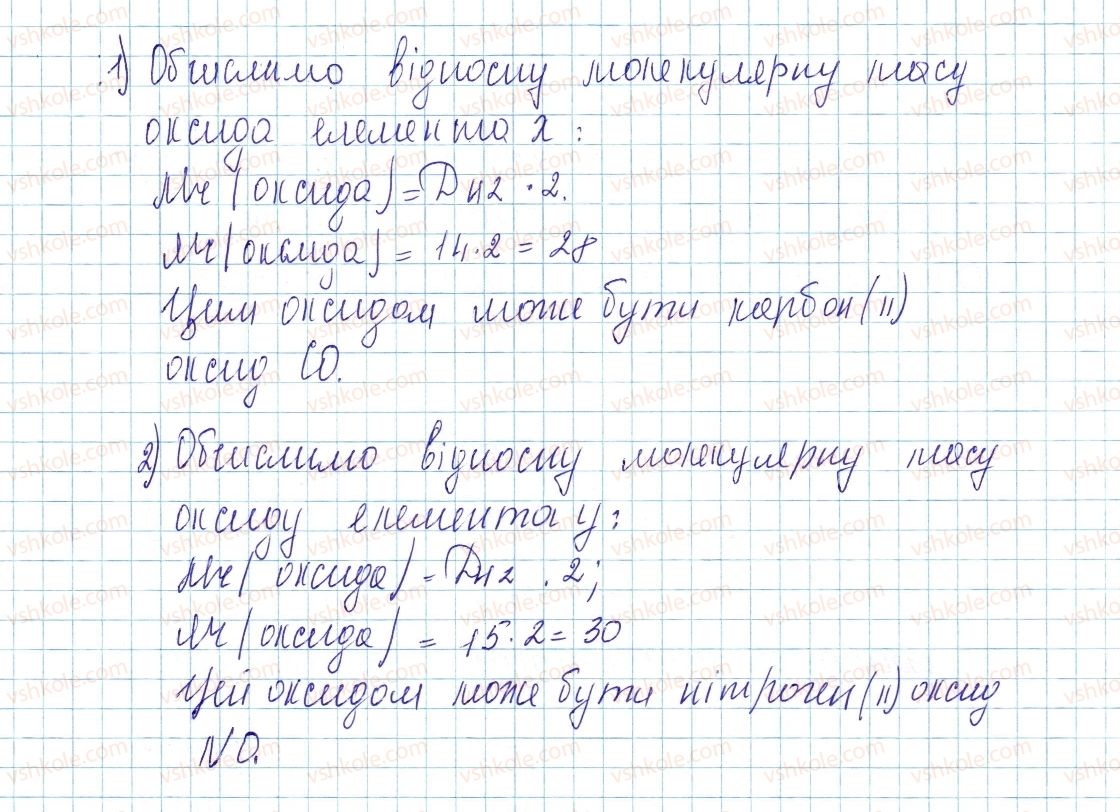 1) Обчислимо відносну молекулярну масу
оксида елемента X:
Mч (оксида) = DH2 · 2.
Mч (оксида) = 14 · 2 = 28
Цим оксидом може бути карбон (II)
оксид CO.
2) Обчислимо відносну молекулярну масу
оксиду елемента У:
Mч (оксида) = DH2 · 2;
Mч (оксида) = 15 · 2 = 30
Цей оксидом може бути нітроген (II) оксид
NO.